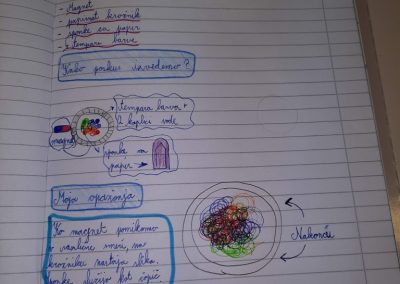 - Magnet
- papirnat krožnik
- sponke za papir
- tempera barve
Kako poskus izvedemo?
tempera barva +
2 kaplji vode
magnet
sponke za
papir
Moja opažanja
Ko magnet pomikamo
v različne smeri, na
krožniku nastaja slika.
Sponke služijo kot čopič.
Nakonču